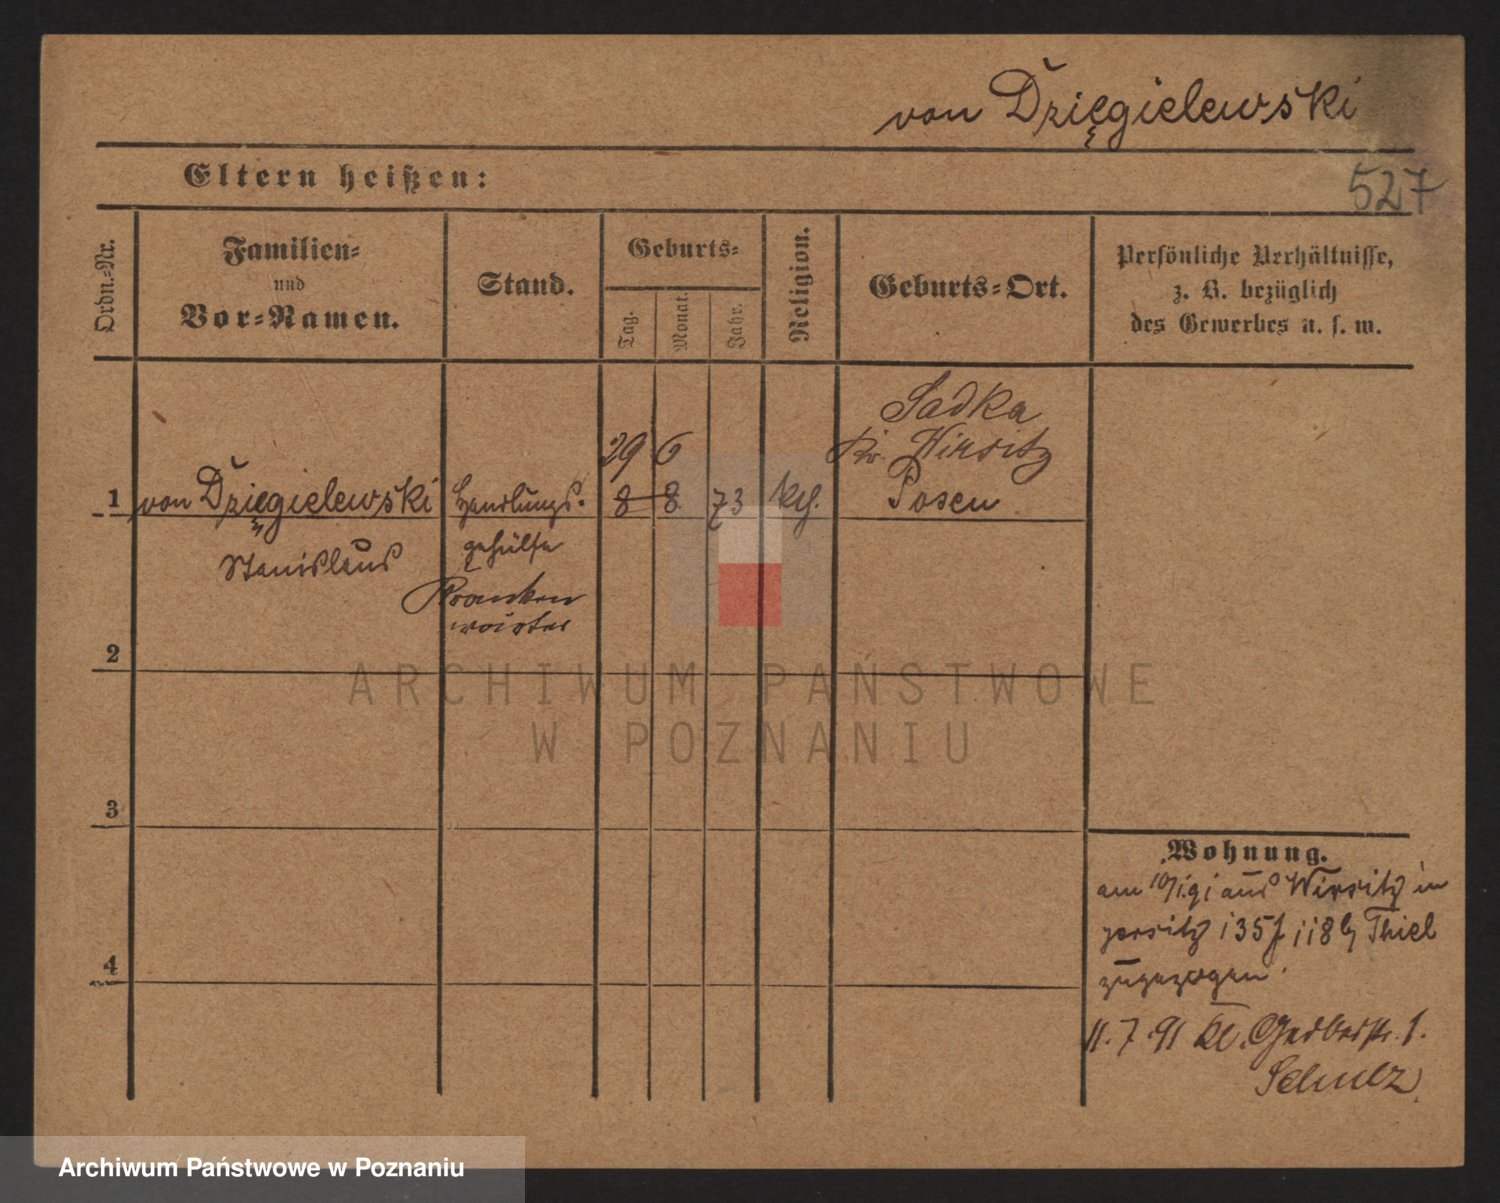 von Dzięgielewski
Eltern heißen:
527
Ordn.-Nr.
Familien-
und
Vor-Namen.
Stand.
Geburts-
Tag.
Monat.
Jahr.
Religion.
Geburts-Ort.
Persönliche Verhältnisse,
z. B. bezüglich
des Gewerbes u. s. w.
Sadka
29 6
Kr. Wirsitz
1 von Dzięgielewski Handlungs- 8 8 73 kth. Posen
Stanislaus gehülfe
Kranken
wärter
2
3
4
Wohnung.
am 10/1.91 aus Wirsitz in
Jersitz 135 118 b Thiel
zugezogen.
11.7.91 Kl. Gerberstr. 1.
Schulz
ARCHIWUM PAŃSTWOWE
W POZNANIU
Archiwum Państwowe w Poznaniu